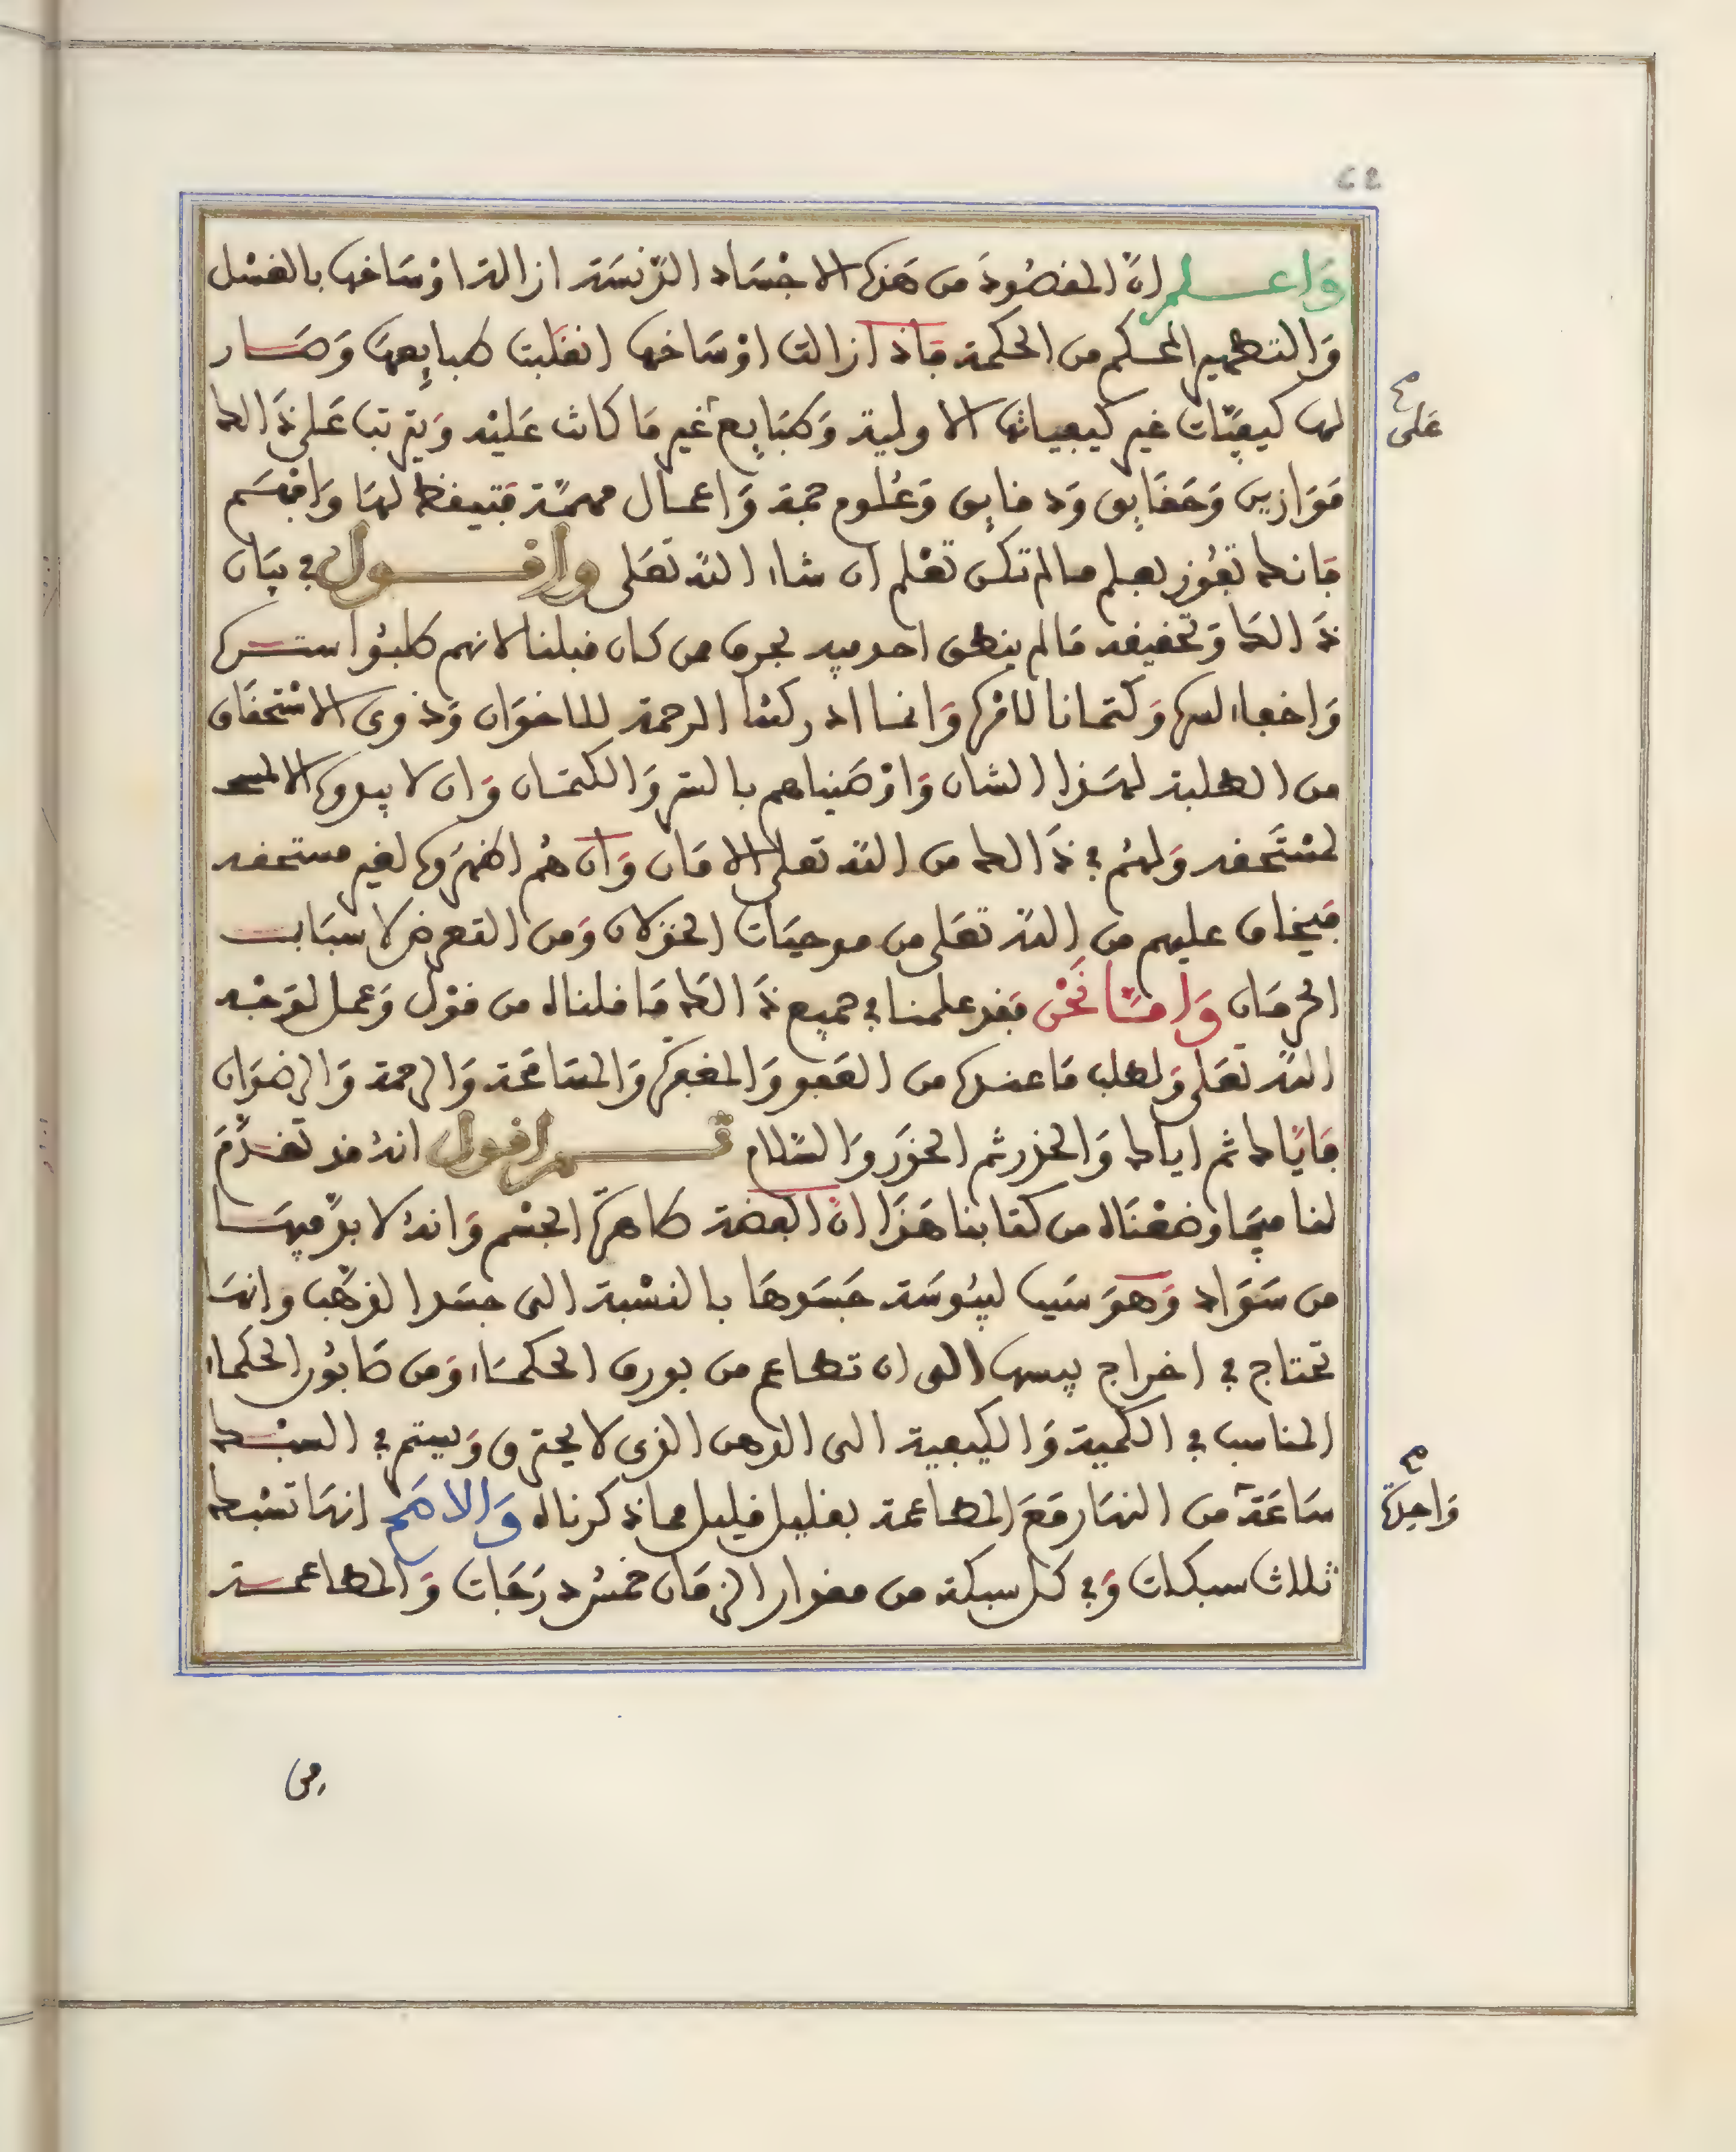 62
وَاعلم انّ المقصُودَ من هَذه الاجْسَاد الدّنسَة ازالة اوْسَاخها بالغسْل
وَالتطهير المحكم من الحكمة فَاذا زالت اوْسَاخها انقلبت طبايعهَا وَصَار
لها كيفيّات غير كيفياتها الاولية وَطبَايع غير مَا كانت عَليْه وَيترتب عَلى ذَالك
مَوَازين وَحَقَايق وَدقايق وَعُلوم جمة وَاعمال مهمّة فتيقظ لهَا وَافْهَم
فَانك تفُوز بعلم مالم تكن تعْلم ان شاء اللّه تعَلى وأقول في بيَان
ذَالك وَتحقيقه مَالم ينطق احد فيه بحرف من كان قبلنا لانهم طلبُوا ستره
وَاخفاء لسره وَكتمانا لامره وَانما ادركتنا الرحمة للاخوَان وَذوى الاسْتحقَاق
من الطلبة لهَذا الشان وَاوْصَيناهم بالستر وَالكتمان وَان لا يبدوه الا
لمسْتَحقه وَلهُم في ذَالك من اللّه تعلى الامَان وَان هُم اظهرَوه لغير مستحقه
فيخاف عليهم من اللّه تعَلى من موجبَات الخذلان وَمن التعرض لاسبَاب
الحرمَان وَامّا نَحْن فقد علمنا في جميع ذَالك مَا قلناه من قوْل وَعمل لوَجْه
اللّه تعَلى وَلطلب مَا عنده من العَفو وَالمغفرَة وَالمسَامحَة وَالرحمة وَالرضوَان
فَايّاك ثم اياك وَالحذر ثم الحذَر وَالسّلام ثم اقول انهُ قد تقدّمَ
لنا فيمَا وضعْنَاه من كتابنا هَذَا انّ الفضة طاهرَة الجسْم وَانهُ لا بدّ فيهَا
من سَوَاد وَهوَ سَبب ليبُوسَة جَسَدهَا بالنسْبة الى جسَد الذهَب وانهَا
تحتاج في اخراج يبسها الى ان تطاعم من بورق الحكمَاء وَمن صَابُون الحكماء
المناسب في الكمية وَالكيفية الى الدهن الذى لا يحترق وَيستم في السبْك
سَاعَة من النهَار مَعَ المطاعمة بقليل قليل مما ذكرناه وَالاهَم انهَا تسْبك
ثلاث سبكات وَفي كل سبكة من مقدار الزمَان خمسُ درَجَات وَالمطاعمة
عَلى
وَاحدَة
من